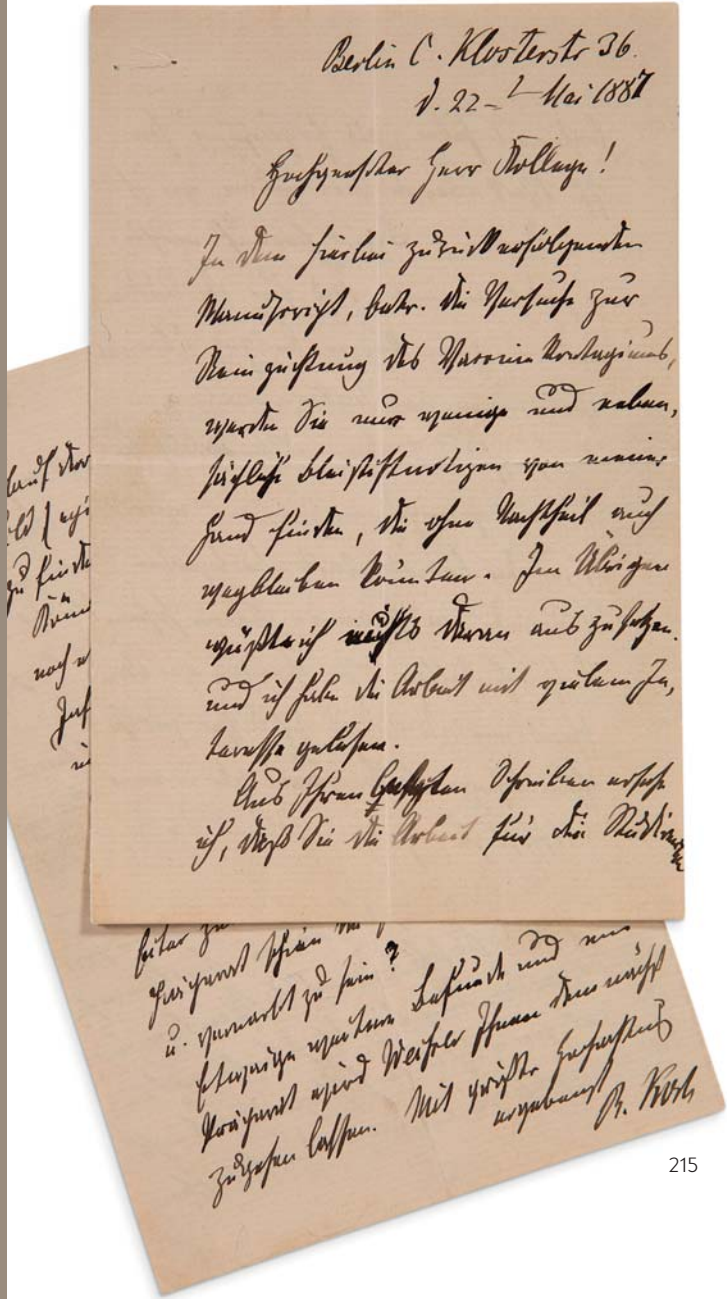 Berlin C. Klosterstr 36.
d. 22-t Mai 1887
Hochgeehrter Herr Kollege!
In dem hierbei zurückerfolgenden
Manuscript, betr. die Versuche zur
Reinzüchtung des Vaccine Kontagiums,
werden Sie nur wenige und neben,
sächliche Bleistiftnotizen von meiner
Hand finden, die ohne Nachtheil auch
wegbleiben könnten. Im Übrigen
wüßte ich nichts daran auszusetzen
und ich habe die Arbeit mit vielem In,
teresse gelesen.
Aus Ihrem Schreiben ersehe
ich, daß Sie die Arbeit für die
auf der
zu finden
noch
Präparat schien
u. vernarbt zu sein?
Etwaige weitere Befunde und
Präparat wird Ihnen demnächst
zugehen lassen. Mit größter Hochachtung
ergebenst
R. Koch
215